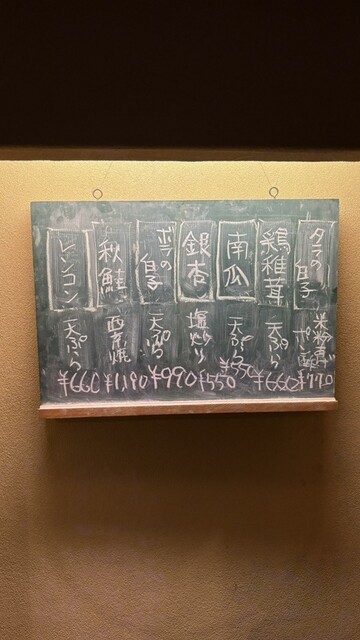 タラの白子
ポン酢
¥770
鶏雑茸
天ぷら
¥660
南瓜
天ぷら
¥550
銀杏
塩炒り
¥550
ボラの白子
天ぷら
¥990
秋鮭
西京焼
¥1,190
レンコン
天ぷら
¥660